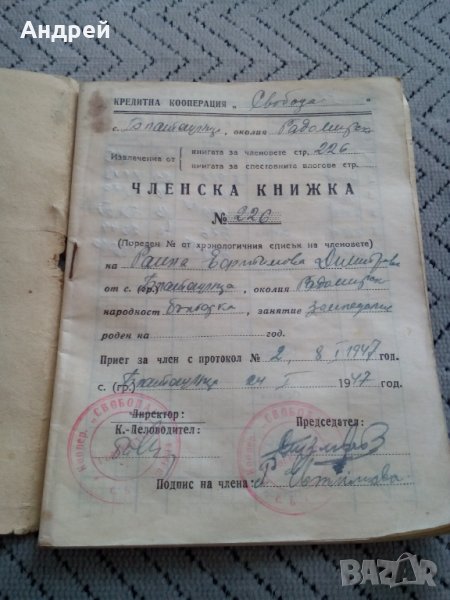 Андрей
КРЕДИТНА КООПЕРАЦИЯ „ Свобода "
с. околия Радомирск
Извлечение от книгата за членовете стр. 226
книгата за спестовните влогове стр.
ЧЛЕНСКА КНИЖКА
№ 226
(Пореден № от хронологичния списък на членовете)
на Райна Димитрова
от с. (гр.) околия Радомирск
народност българка, занятие земеделка
роден на год.
Приет за член с протокол № 2, 8 I 1947 год.
с. (гр.) 24 I 1947 год.
Директор: Председател:
К.-Деловодител:
Подпис на члена: Р
Коопер. "СВОБОДА"
BAZAR.bg